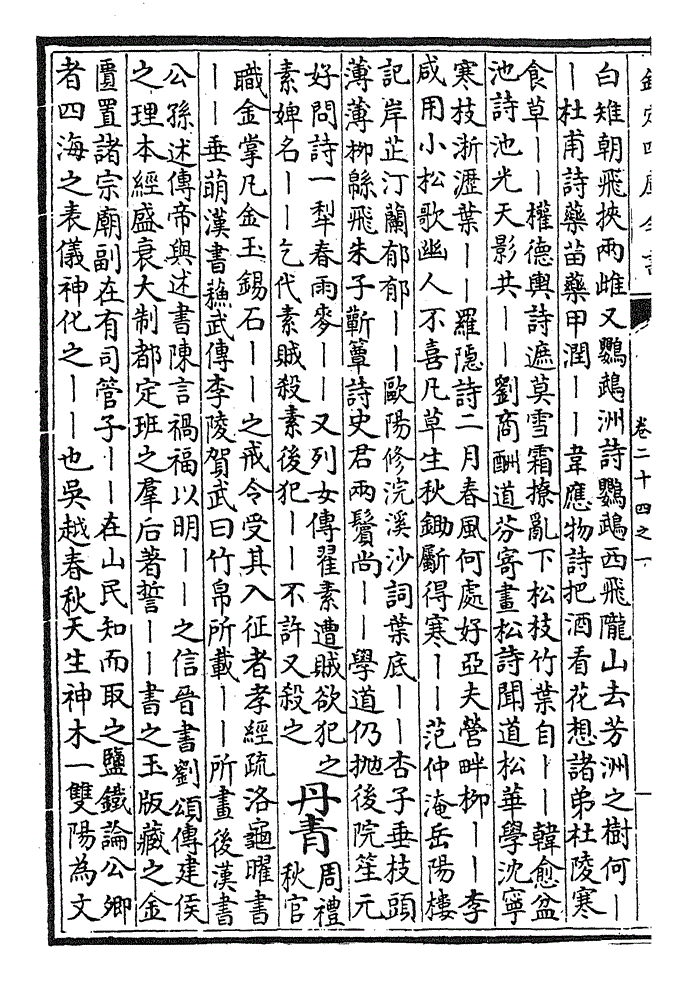 欽定四庫全書
卷二十四之一
白雉朝飛挾兩雌又鸚鵡洲詩鸚鵡西飛隴山去芳洲之樹何丨
丨杜甫詩藥苗藥甲潤丨丨韋應物詩把酒看花想諸弟杜陵寒
食草丨丨權德輿詩遮莫雪霜撩亂下松枝竹葉自丨丨韓愈盆
池詩池光天影共丨丨劉商酬道芬寄畫松詩聞道松華學沈寧
寒枝淅瀝葉丨丨羅隱詩二月春風何處好亞夫營畔柳丨丨李
咸用小松歌幽人不喜凡草生秋鋤斸得寒丨丨范仲淹岳陽樓
記岸芷汀蘭郁郁丨丨歐陽修浣溪沙詞葉底丨丨杏子垂枝頭
薄薄栁緜飛朱子蘄簟詩史君兩鬢尚丨丨學道仍拋後院笙元
好問詩一犁春雨麥丨丨又列女傳翟素遭賊欲犯之
素婢名丨丨乞代素賊殺素後犯丨丨不許又殺之
丹青
周禮
秋官
職金掌凡金玉錫石丨丨之戒令受其入征者孝經疏洛龜曜書
丨丨垂萌漢書蘇武傳李陵賀武曰竹帛所載丨丨所畫後漢書
公孫述傳帝與述書陳言禍福以明丨丨之信晉書劉頌傳建侯
之理本經盛衰大制都定班之羣后著誓丨丨書之玉版藏之金
匱置諸宗廟副在有司管子丨丨在山民知而取之鹽鐵論公卿
者四海之表儀神化之丨丨也吳越春秋天生神木一雙陽為文